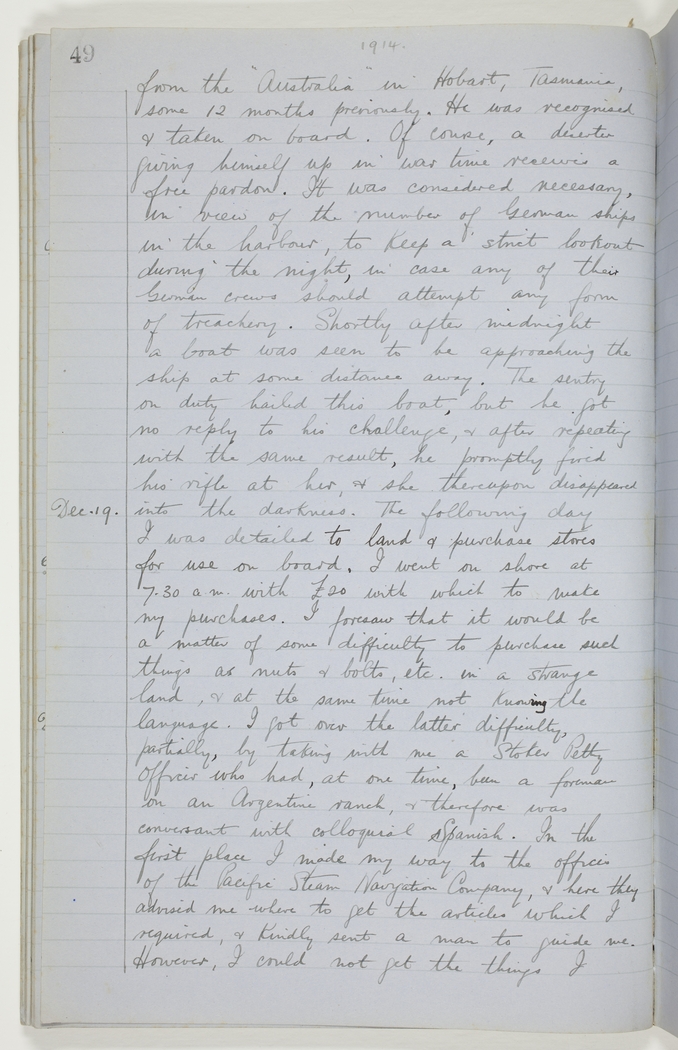 49
1914.
from the "Australia" in Hobart, Tasmania,
some 12 months previously. He was recognised
& taken on board. Of course, a deserter
giving himself up in war time receives a
free pardon. It was considered necessary,
in view of the number of German ships
in the harbour, to keep a strict lookout
during the night, in case any of their
German crews should attempt any form
of treachery. Shortly after midnight
a boat was seen to be approaching the
ship at some distance away. The sentry
on duty hailed this boat, but he got
no reply to his challenge, & after repeating
with the same result, he promptly fired
his rifle at her, & she thereupon disappeared
Dec. 19. into the darkness. The following day
I was detailed to land & purchase stores
for use on board. I went on shore at
7.30 a.m. with £20 with which to make
my purchases. I foresaw that it would be
a matter of some difficulty to purchase such
things as nuts & bolts, etc. in a strange
land, & at the same time not knowing the
language. I got over the latter difficulty,
partially, by taking with me a Stoker Petty
Officer who had, at one time, been a foreman
on an Argentine ranch, & therefore was
conversant with colloquial Spanish. In the
first place I made my way to the offices
of the Pacific Steam Navigation Company, & here they
advised me where to get the articles which I
required, & kindly sent a man to guide me.
However, I could not get the things I